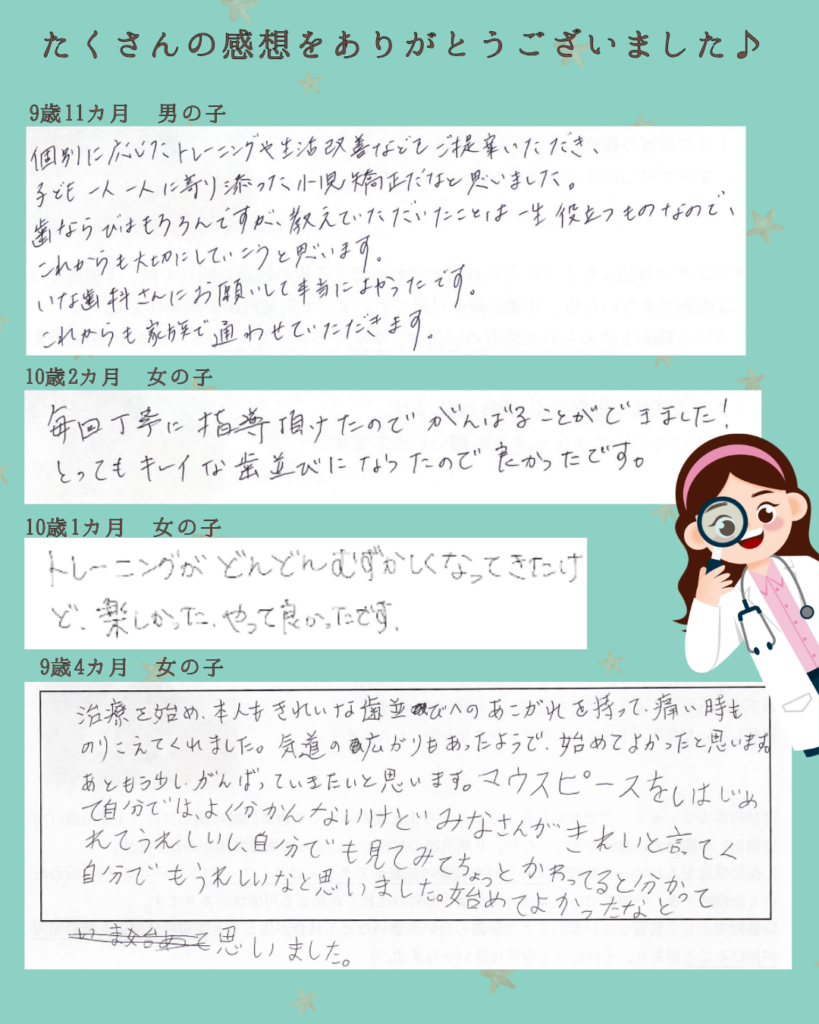 たくさんの感想をありがとうございました♪
9歳11カ月　男の子
個別に応じた、トレーニングや生活改善などをご提案いただき、
子ども一人一人に寄り添った、小児矯正だなと思いました。
歯ならびはもちろんですが、教えていただいたことは一生役立つものなので、
これからも大切にしていこうと思います。
いな歯科さんにお願いして本当によかったです。
これからも家族で通わせていただきます。
10歳2カ月　女の子
毎回丁寧に指導頂けたのでがんばることができました!
とってもキレイな歯並びになったので良かったです。
10歳1カ月　女の子
トレーニングがどんどんむずかしくなってきたけ
ど、楽しかった、やって良かったです。
9歳4カ月　女の子
治療を始め、本人もきれいな歯並びへのあこがれを持って、痛い時も
のりこえてくれました。気道の広がりもあったようで、始めてよかったと思います。
あともう少し、がんばっていきたいと思います。マウスピースをしはじめ
て自分では、よく分かんないけどみなさんがきれいと言ってく
れてうれしいし、自分でも見てみてちょっとかわってると分かって
自分でもうれしいなと思いました。始めてよかったなと
思いました。